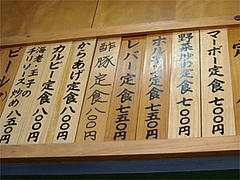 定食
マーボー定食 七〇〇
野菜炒め定食 七〇〇
ホルモン定食 七五〇
レバー定食 七五〇
酢豚定食 八〇〇
からあげ定食 八〇〇
カルビー定食 八五〇
海老・玉子の
チリソース炒め 八五〇
ビール